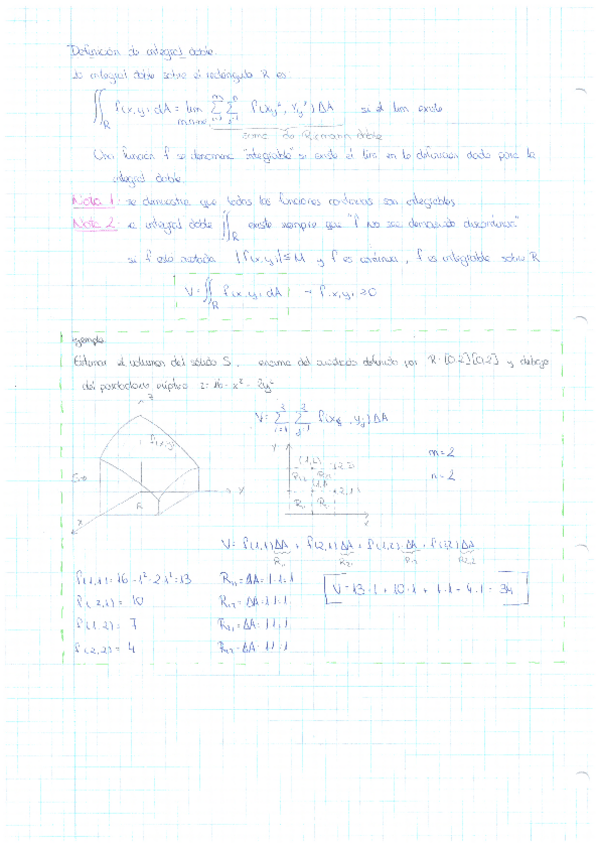 Definición de integral doble
La integral doble sobre el rectángulo R es
∬_R f(x,y) dA = lim_{m,n→∞} Σ_{i=1}^{m} Σ_{j=1}^{n} f(x_ij*, y_ij*) ΔA si el lim existe
suma de Riemann doble
Una función f se denomina "integrable" si existe el lim en la definición dada para la
integral doble.
Nota 1: se demuestra que todas las funciones continuas son integrables.
Nota 2: la integral doble ∬_R existe siempre que "f NO sea demasiado discontinua"
si f está acotada |f(x,y)| ≤ M y f es continua, f es integrable sobre R
V = ∬_R f(x,y) dA → f(x,y) ≥ 0
Ejemplo
Estimar el volumen del sólido S, encima del cuadrado definido por R = [0,2][0,2] y debajo
del paraboloide elíptico z = 16 - x² - 2y²
z
f(x,y)
R
x
y
V = Σ_{i=1} Σ_{j=1}^{2} f(x_i, y_j) ΔA
Y
(1,2) (2,2)
(1,1) (2,1)
x
m = 2
n = 2
V = f(1,1)ΔA + f(2,1)ΔA + f(1,2)ΔA + f(2,2)ΔA
f(1,1) = 16 - 1² - 2·1² = 13
R₁₁ = ΔA = 1·1 = 1
V = 13·1 + 10·1 + 7·1 + 4·1 = 34
f(2,1) = 10
ΔA = 1·1 = 1
f(1,2) = 7
ΔA = 1·1 = 1
f(2,2) = 4
ΔA = 1·1 = 1